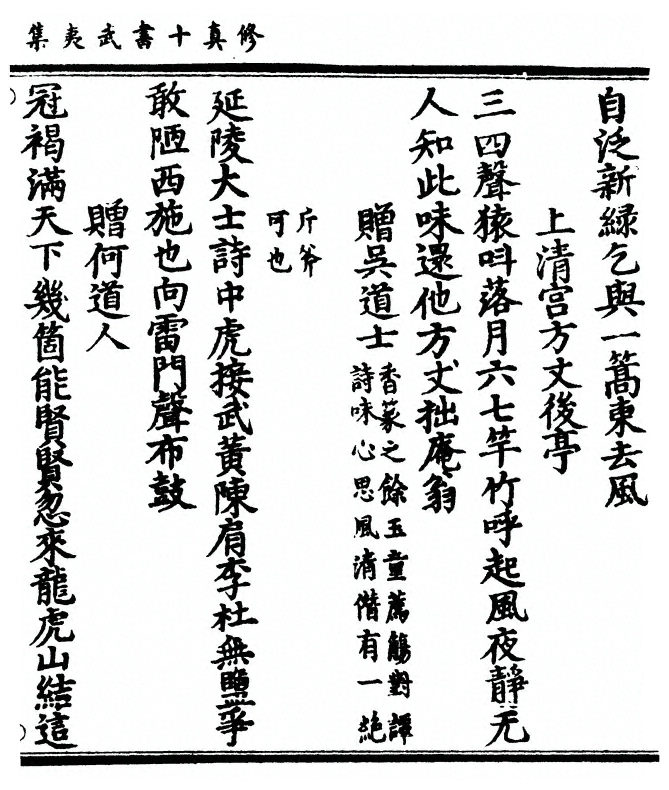 修真十書武夷集
自泛新綠乞與一篙東去風
上清宮方丈後亭
三四聲猿呌落月六七竿竹呼起風夜靜无
人知此味還他方丈拙庵翁
贈吳道士
香篆之餘玉童薦觴對譚
詩味心思風清僭有一絕
斤斧
可也
延陵大士詩中虎接武黃陳肩李杜無鹽爭
敢陋西施也向雷門聲布鼓
贈何道人
冠褐滿天下幾箇能賢賢忽來龍虎山結這